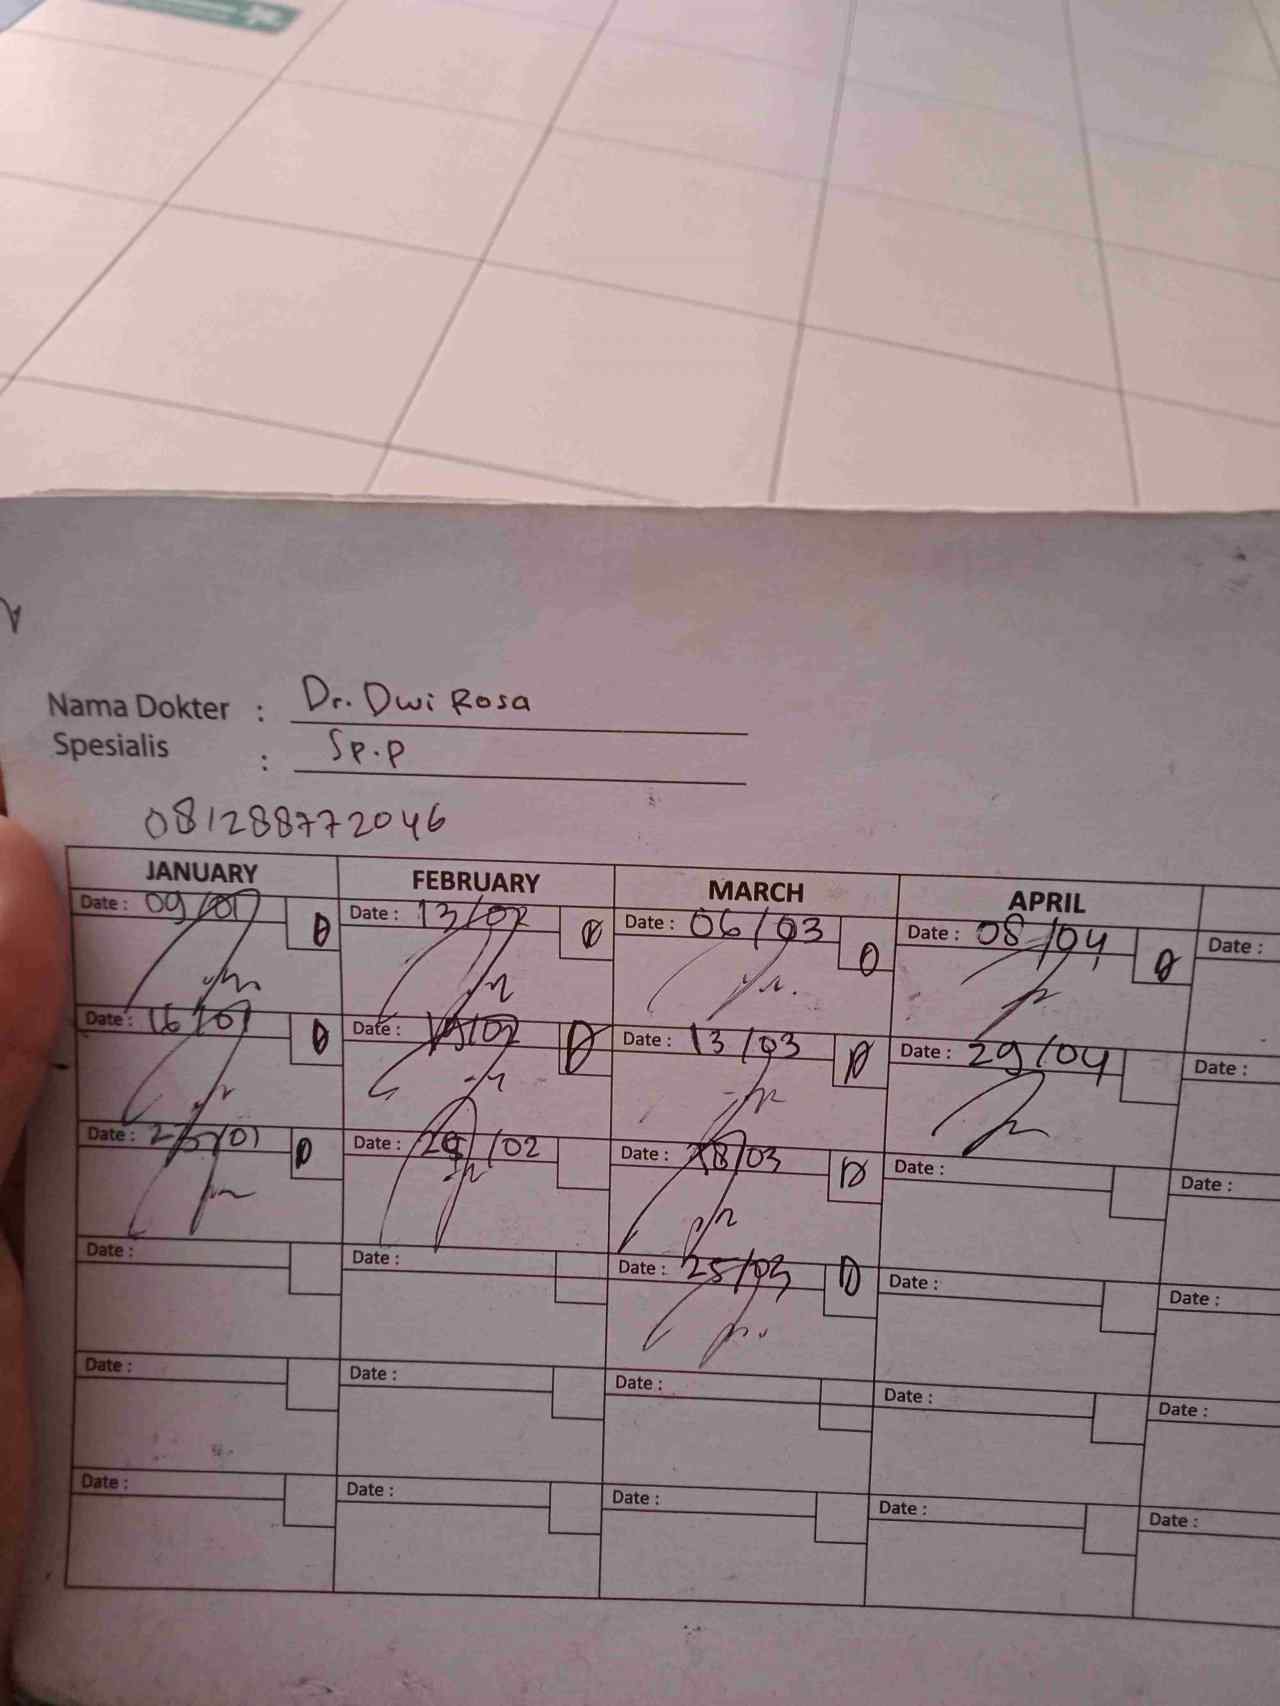 Nama Dokter : Dr. Dwi Rosa
Spesialis : Sp.P
081288772046
JANUARY FEBRUARY MARCH APRIL
Date : 09/01 Date : 13/02 Date : 06/03 Date : 08/04 Date :
Date : 16/01 Date : 19/02 Date : 13/03 Date : 29/04 Date :
Date : 23/01 Date : /02 Date : 18/03 Date : Date :
Date : Date : Date : 25/03 Date : Date :
Date : Date : Date : Date : Date :
Date : Date : Date : Date : Date :